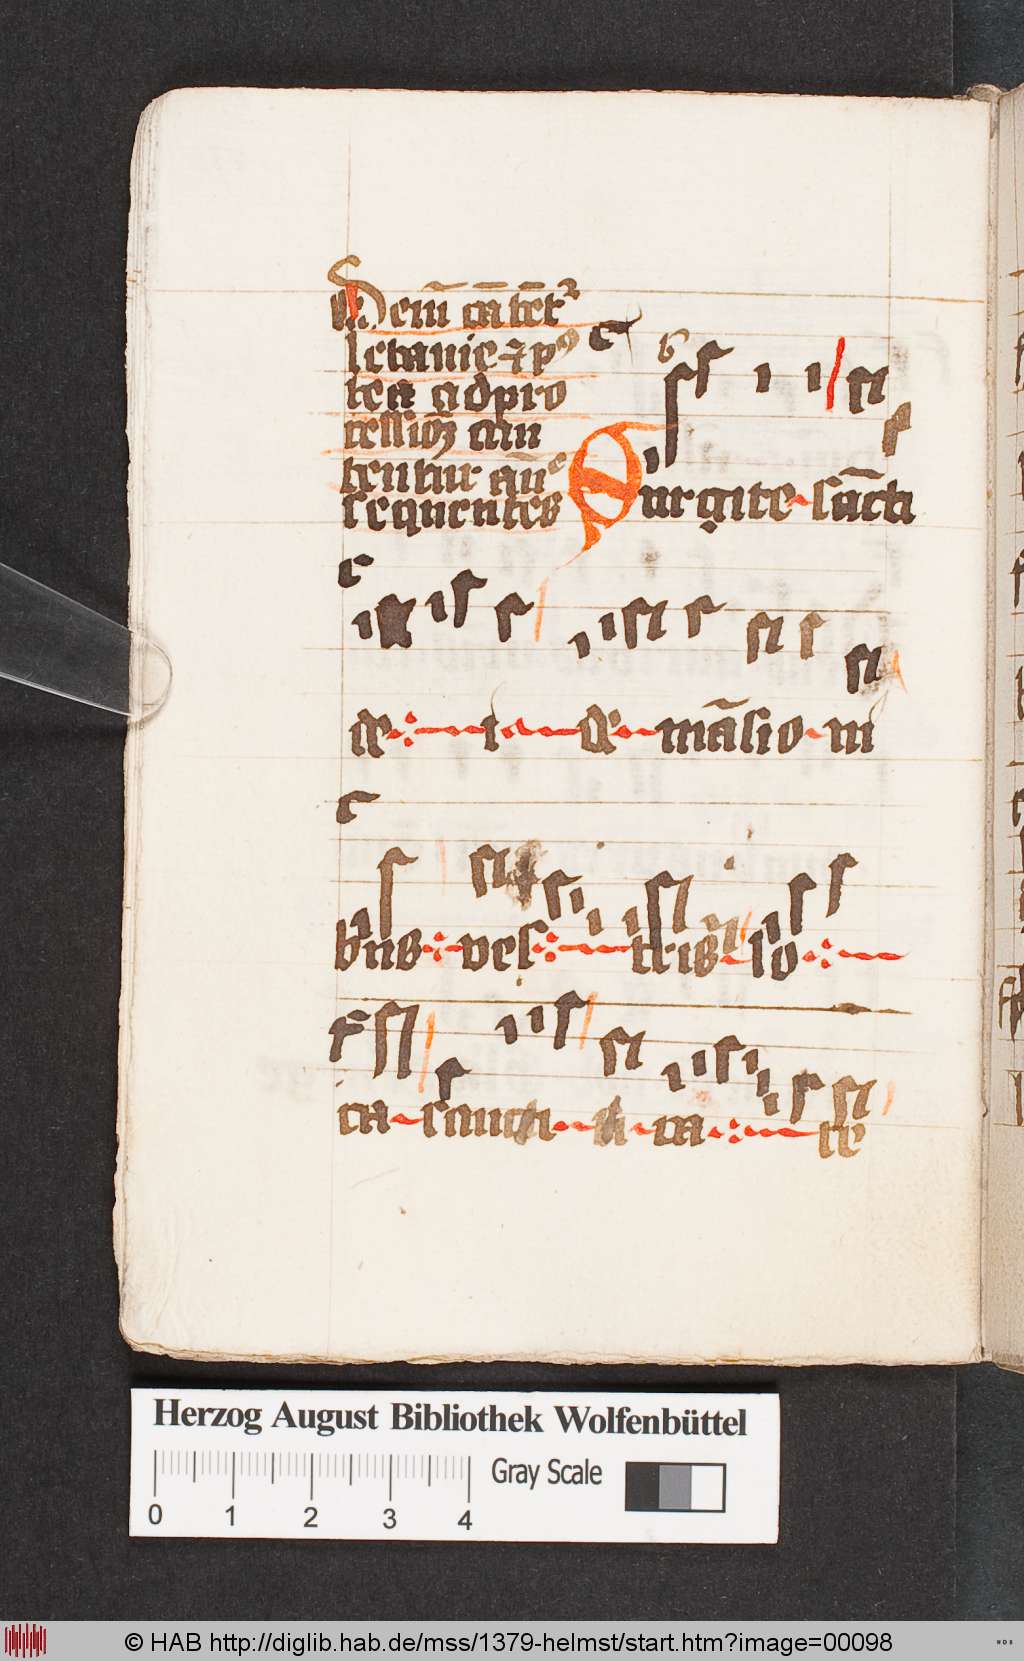 Deīn cātēt᷑
letanie ⁊ pꝰ
tea ad pro
cessioꝫ can
tentur añe
sequentes
Surgite sācti
de i de māsio ni
bus ves tris lo
ca sancti fi ca te
Herzog August Bibliothek Wolfenbüttel
Gray Scale
0 1 2 3 4
© HAB http://diglib.hab.de/mss/1379-helmst/start.htm?image=00098